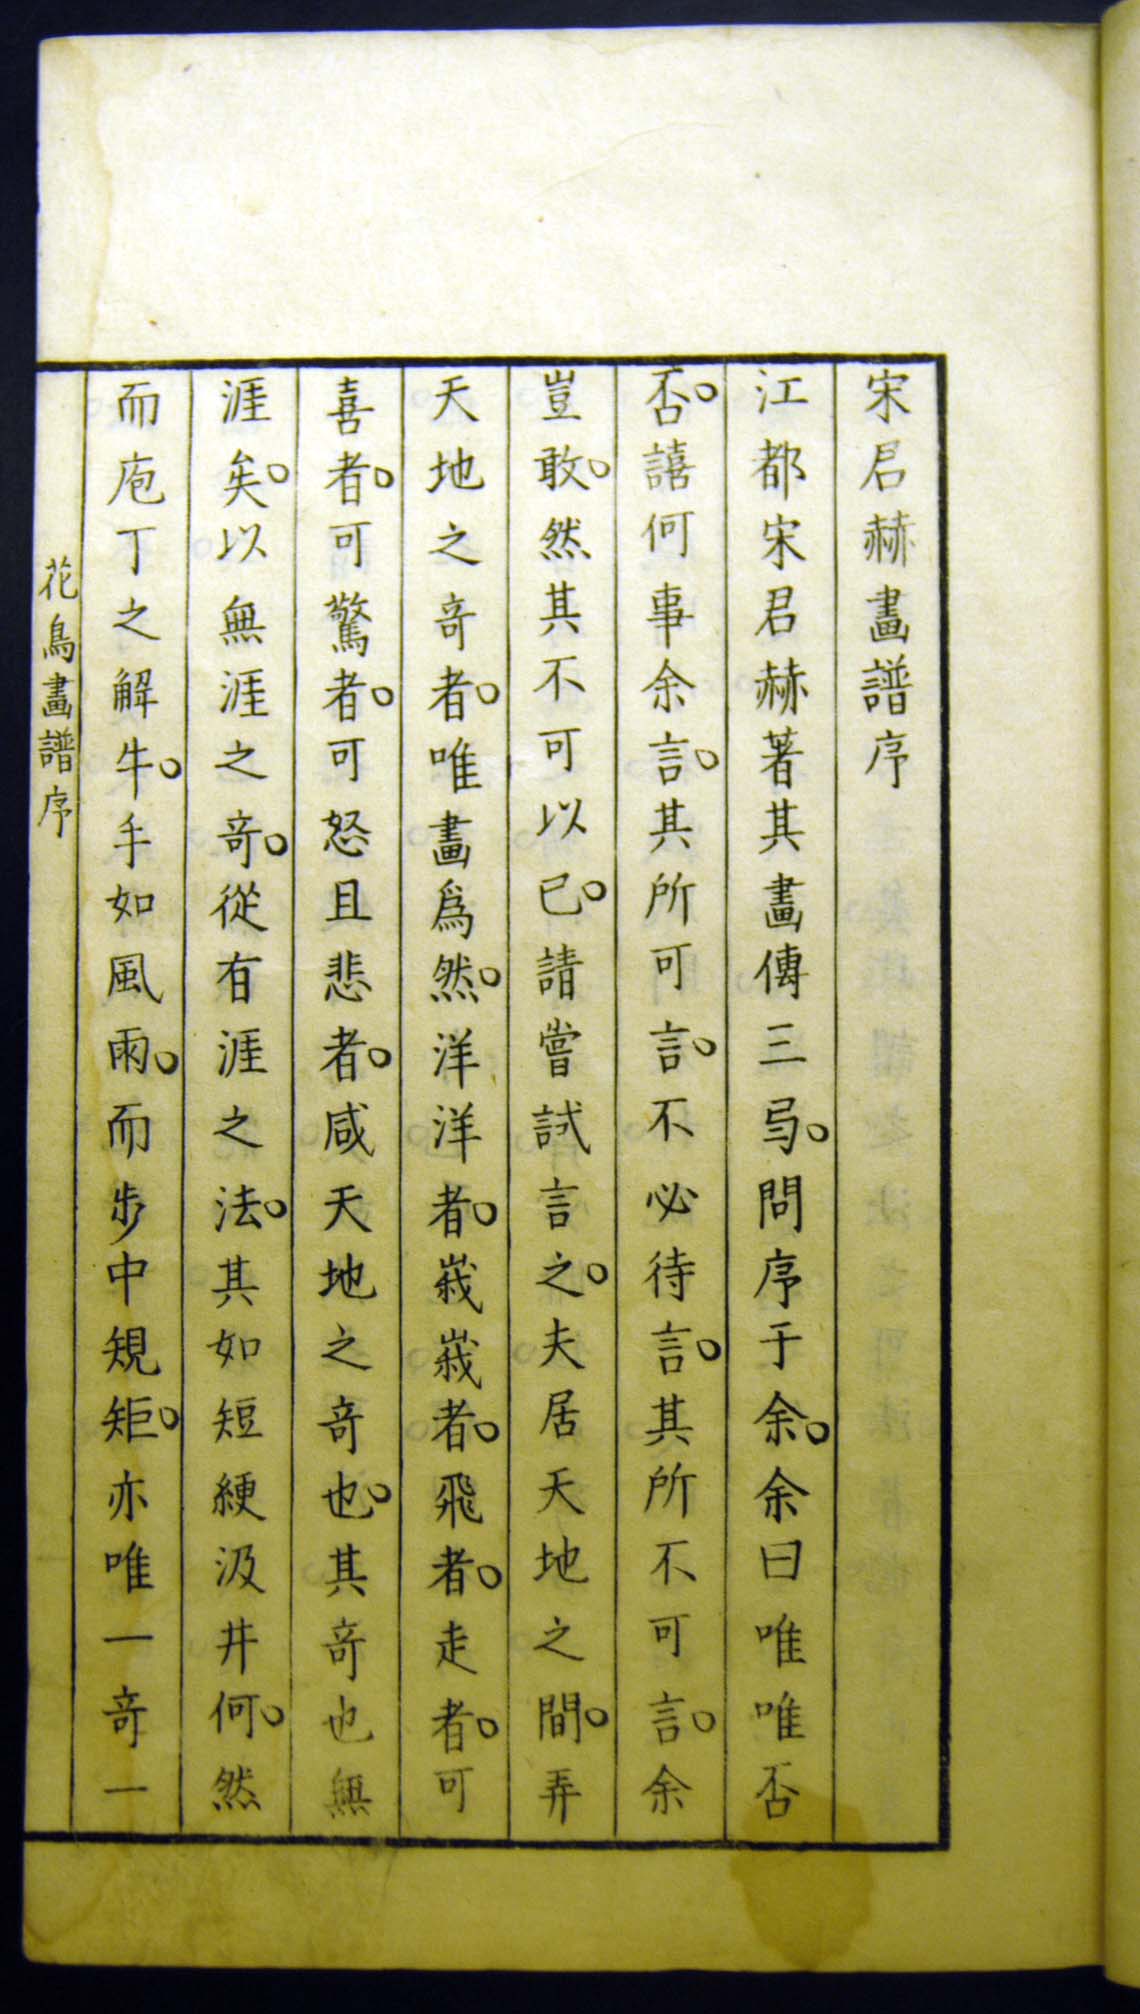 宋君赫畫譜序
江都宋君赫著其畫傳三弓。問序于余。余曰唯唯否
否。譆何事余言。其所可言。不必待言。其所不可言。余
豈敢。然其不可以已。請嘗試言之。夫居天地之間。弄
天地之奇者。唯畫爲然。洋洋者。峩峩者。飛者。走者。可
喜者。可驚者。可怒且悲者。咸天地之奇也。其奇也無
涯矣。以無涯之奇。從有涯之法。其如短綆汲井何。然
而庖丁之解牛。手如風雨。而步中規矩。亦唯一奇一
花鳥畫譜序